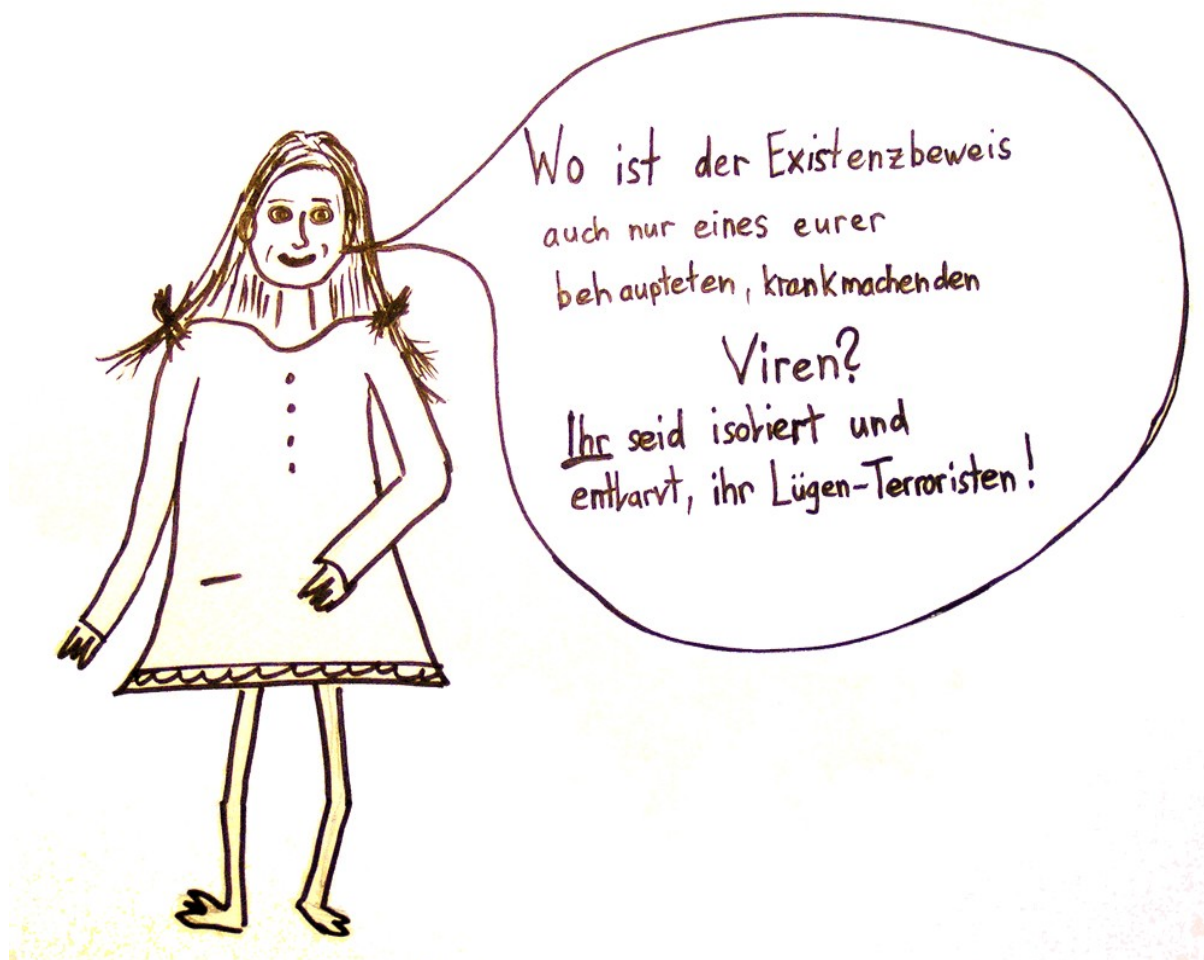 Wo ist der Existenzbeweis
auch nur eines eurer
behaupteten, krankmachenden
Viren?
Ihr seid isoliert und
entlarvt, ihr Lügen-Terroristen!